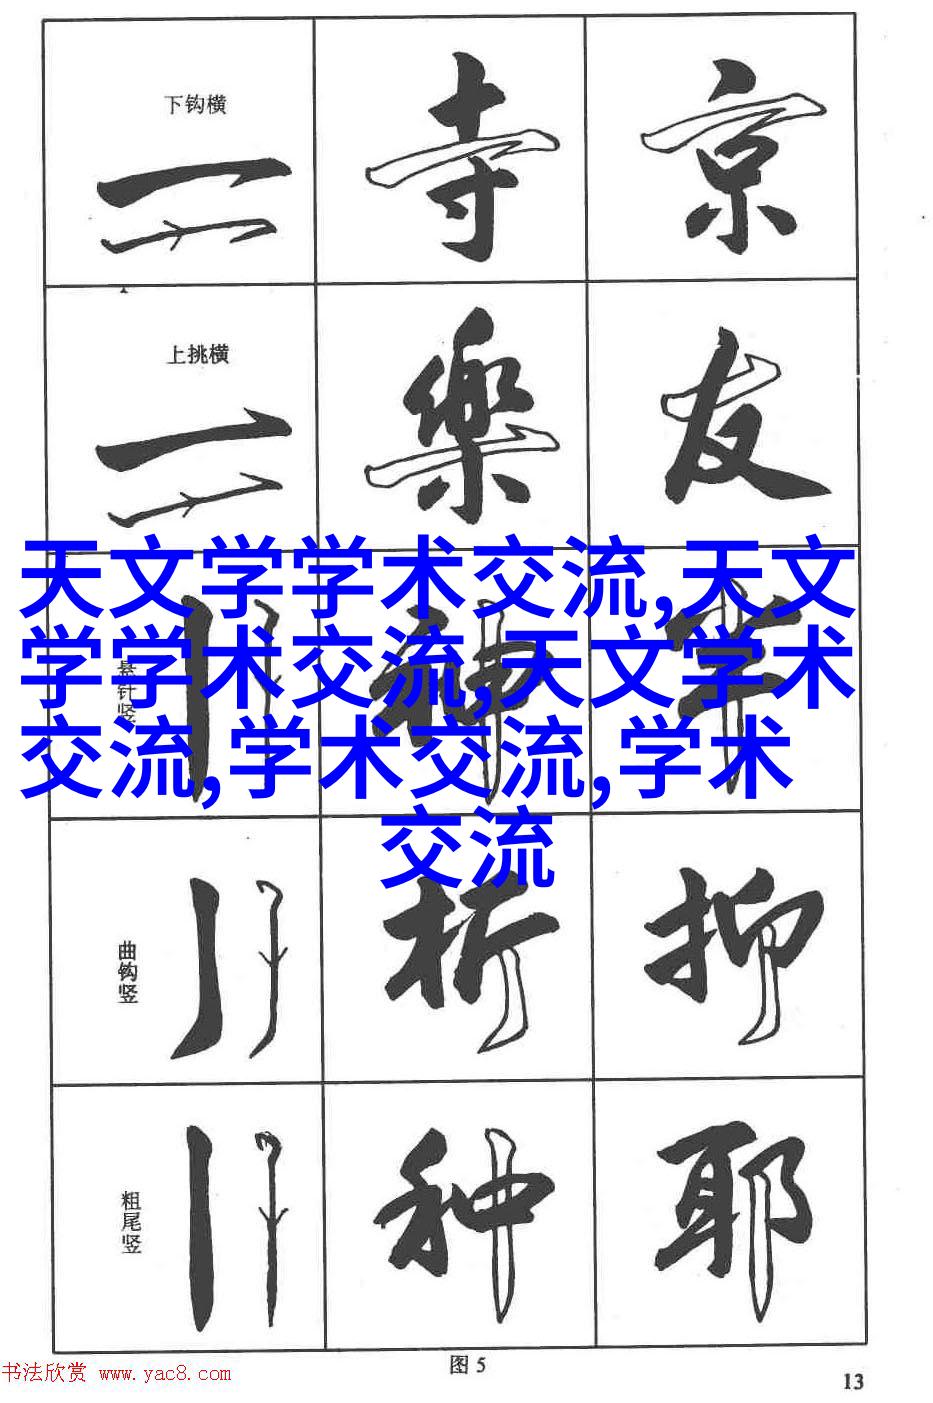 下钩横
寺
京
上挑横
樂
友
天文学学术交流,天文
学学术交流,天文学术
交流,学术交流,学术
交流
悬针竖
神
曲钩竖
析
抑
粗尾竖
种
耶
图 5
书法欣赏 www.yac8.com
13